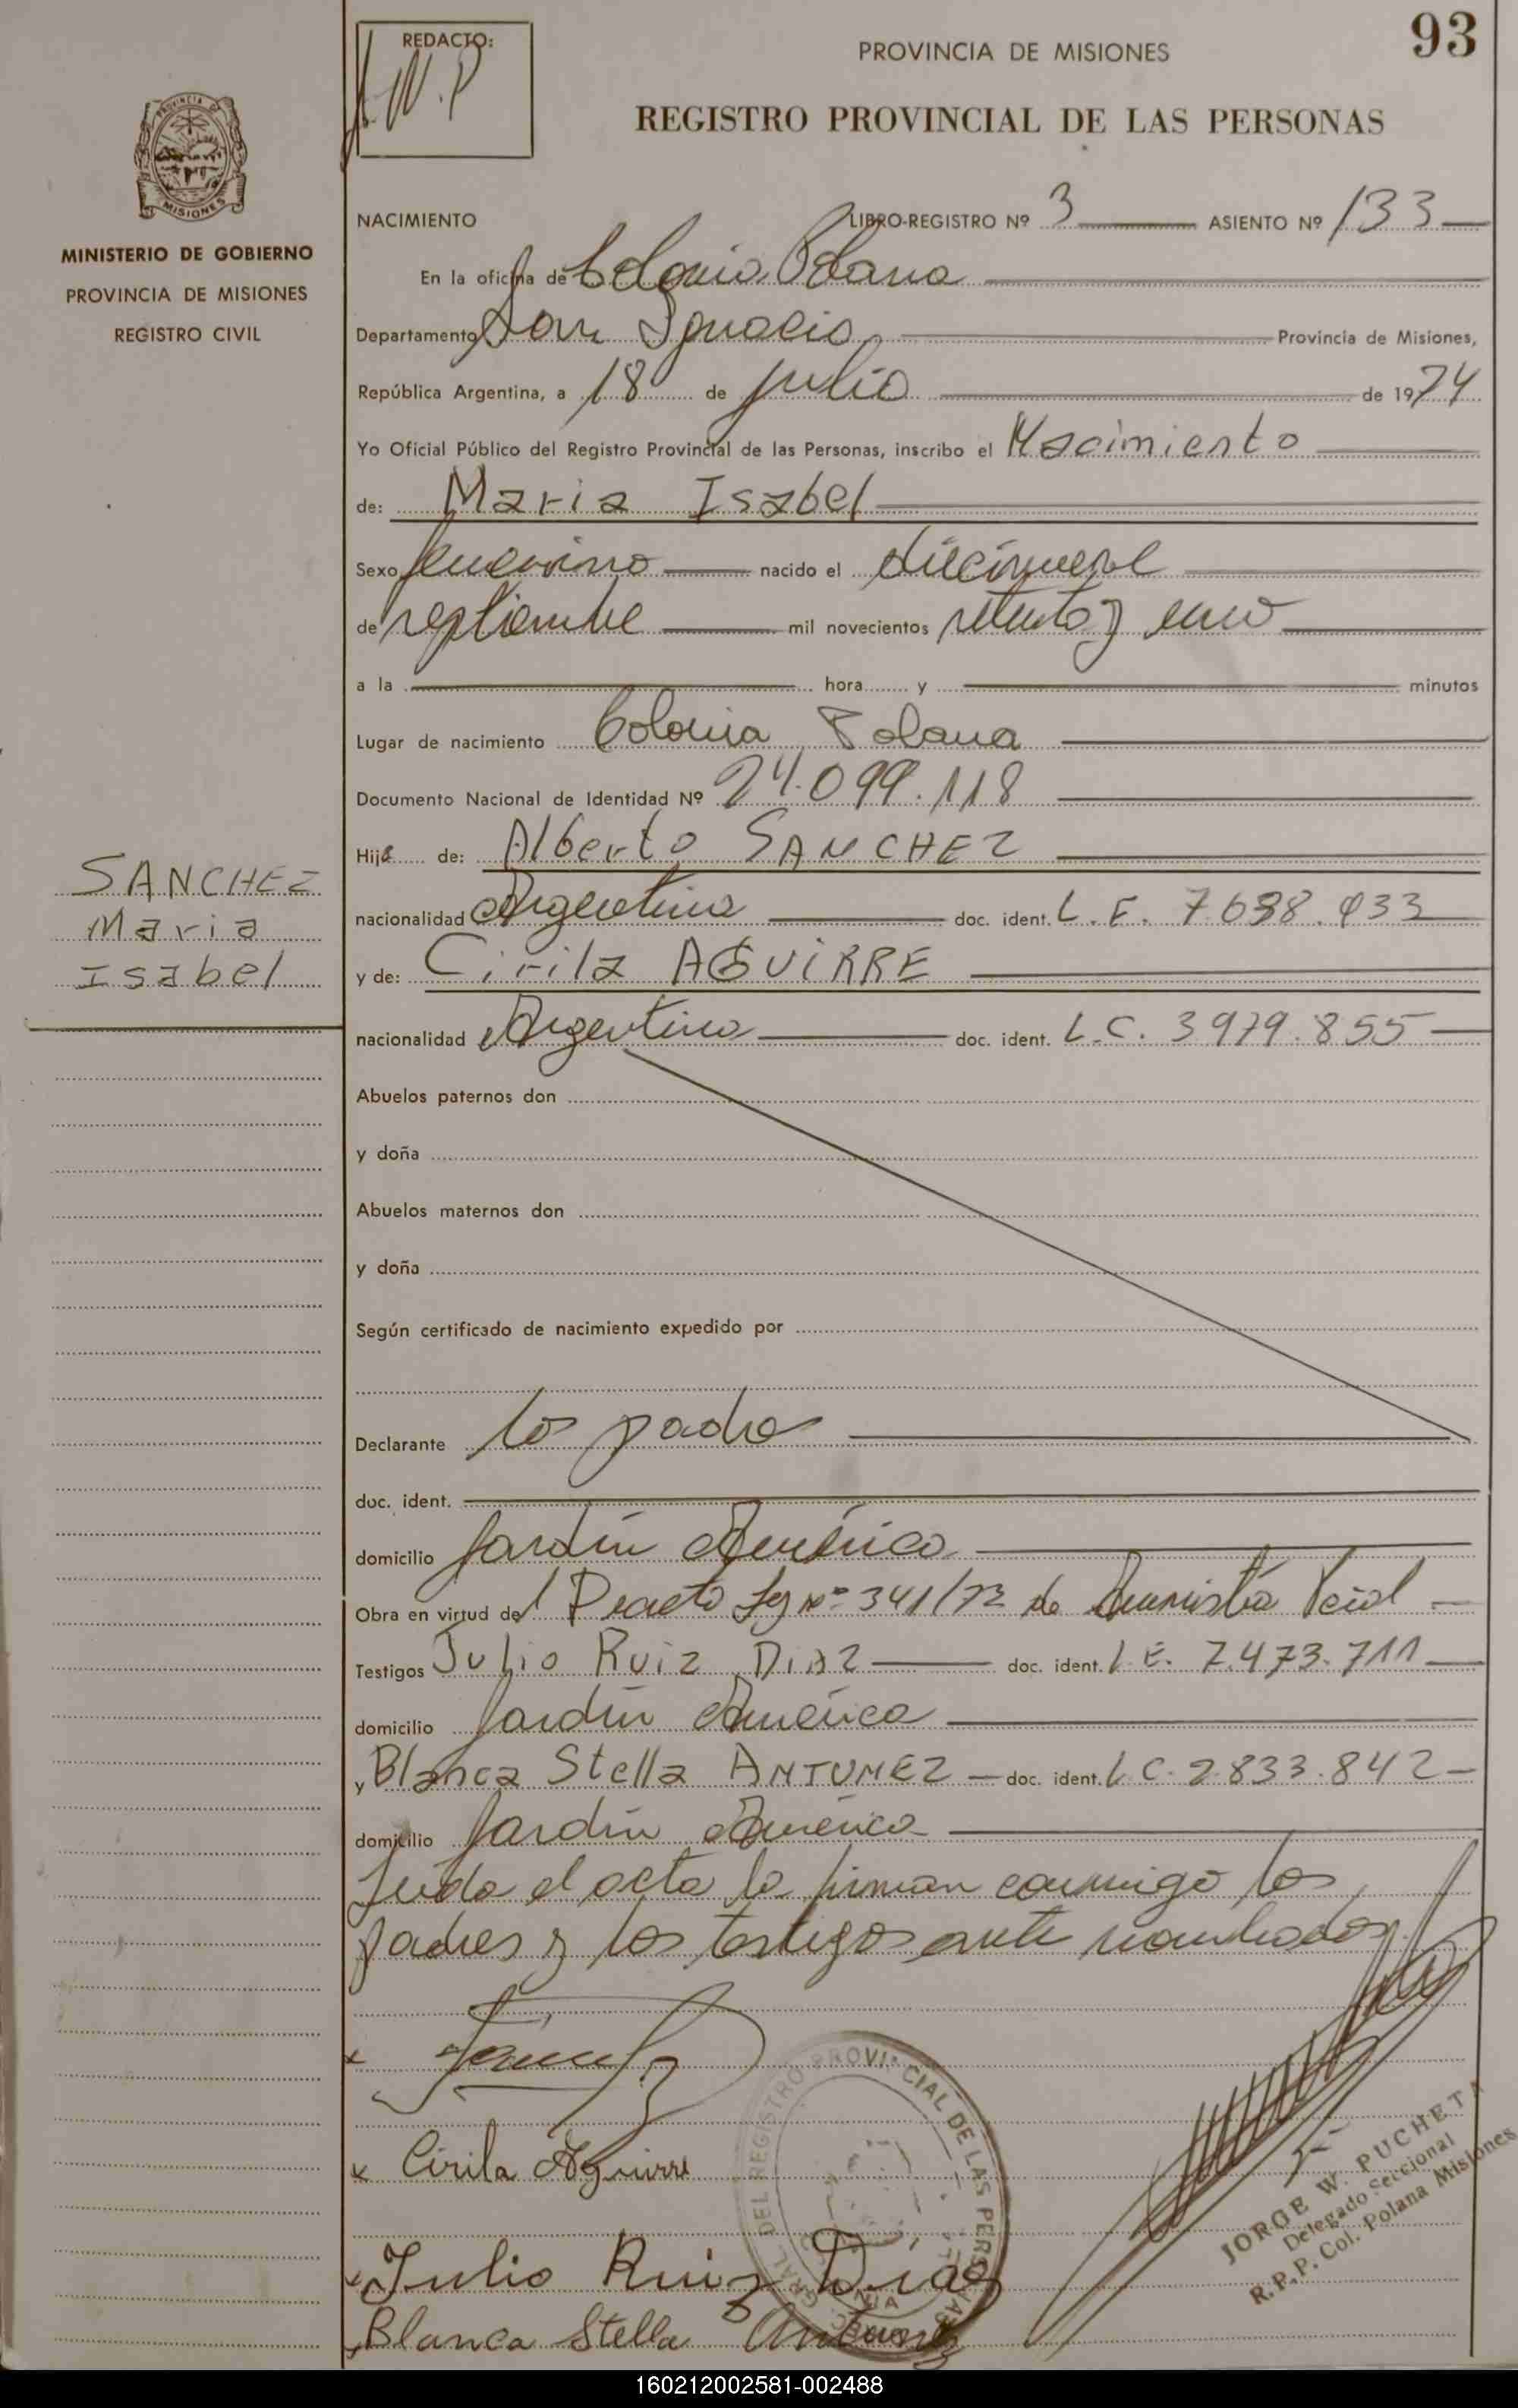 93
REDACTO:
PROVINCIA DE MISIONES
REGISTRO PROVINCIAL DE LAS PERSONAS
MISIONES
MINISTERIO DE GOBIERNO
PROVINCIA DE MISIONES
REGISTRO CIVIL
NACIMIENTO LIBRO-REGISTRO Nº 3 ASIENTO Nº 133
En la oficina de Colonia Polana
Departamento San Ignacio Provincia de Misiones,
República Argentina, a 18 de julio de 1974
Yo Oficial Público del Registro Provincial de las Personas, inscribo el Nacimiento
de: Maria Isabel
Sexo femenino nacido el diecinueve
de septiembre mil novecientos setenta y uno
a la hora y minutos
Lugar de nacimiento Colonia Polana
Documento Nacional de Identidad Nº 24.099.118
Hija de: Alberto SANCHEZ
SANCHEZ
Maria
Isabel
nacionalidad Argentina doc. ident. L.E.
y de: Cirila AGUIRRE
nacionalidad Argentina doc. ident. L.C. 3979.855
Abuelos paternos don
y doña
Abuelos maternos don
y doña
Según certificado de nacimiento expedido por
Declarante los padres
doc. ident.
domicilio Jardín América
Obra en virtud del Decreto Ley nº 341/72 de Amnistía
Testigos Julio Ruiz DIAZ doc. ident. L.E. 7.473.711
domicilio Jardín América
y Blanca Stella ANTUNEZ doc. ident. L.C. 2.833.842
domicilio Jardín América
Leída el acta la firman conmigo los
padres y los testigos ante nombrados
Cirila Aguirre
Julio Ruiz Diaz
Blanca Stella Antunez
GRAL DEL REGISTRO PROVINCIAL DE LAS PERSONAS
JORGE W. PUCHETA
Delegado Seccional
R.P.P. Col. Polana Misiones
160212002581-002488